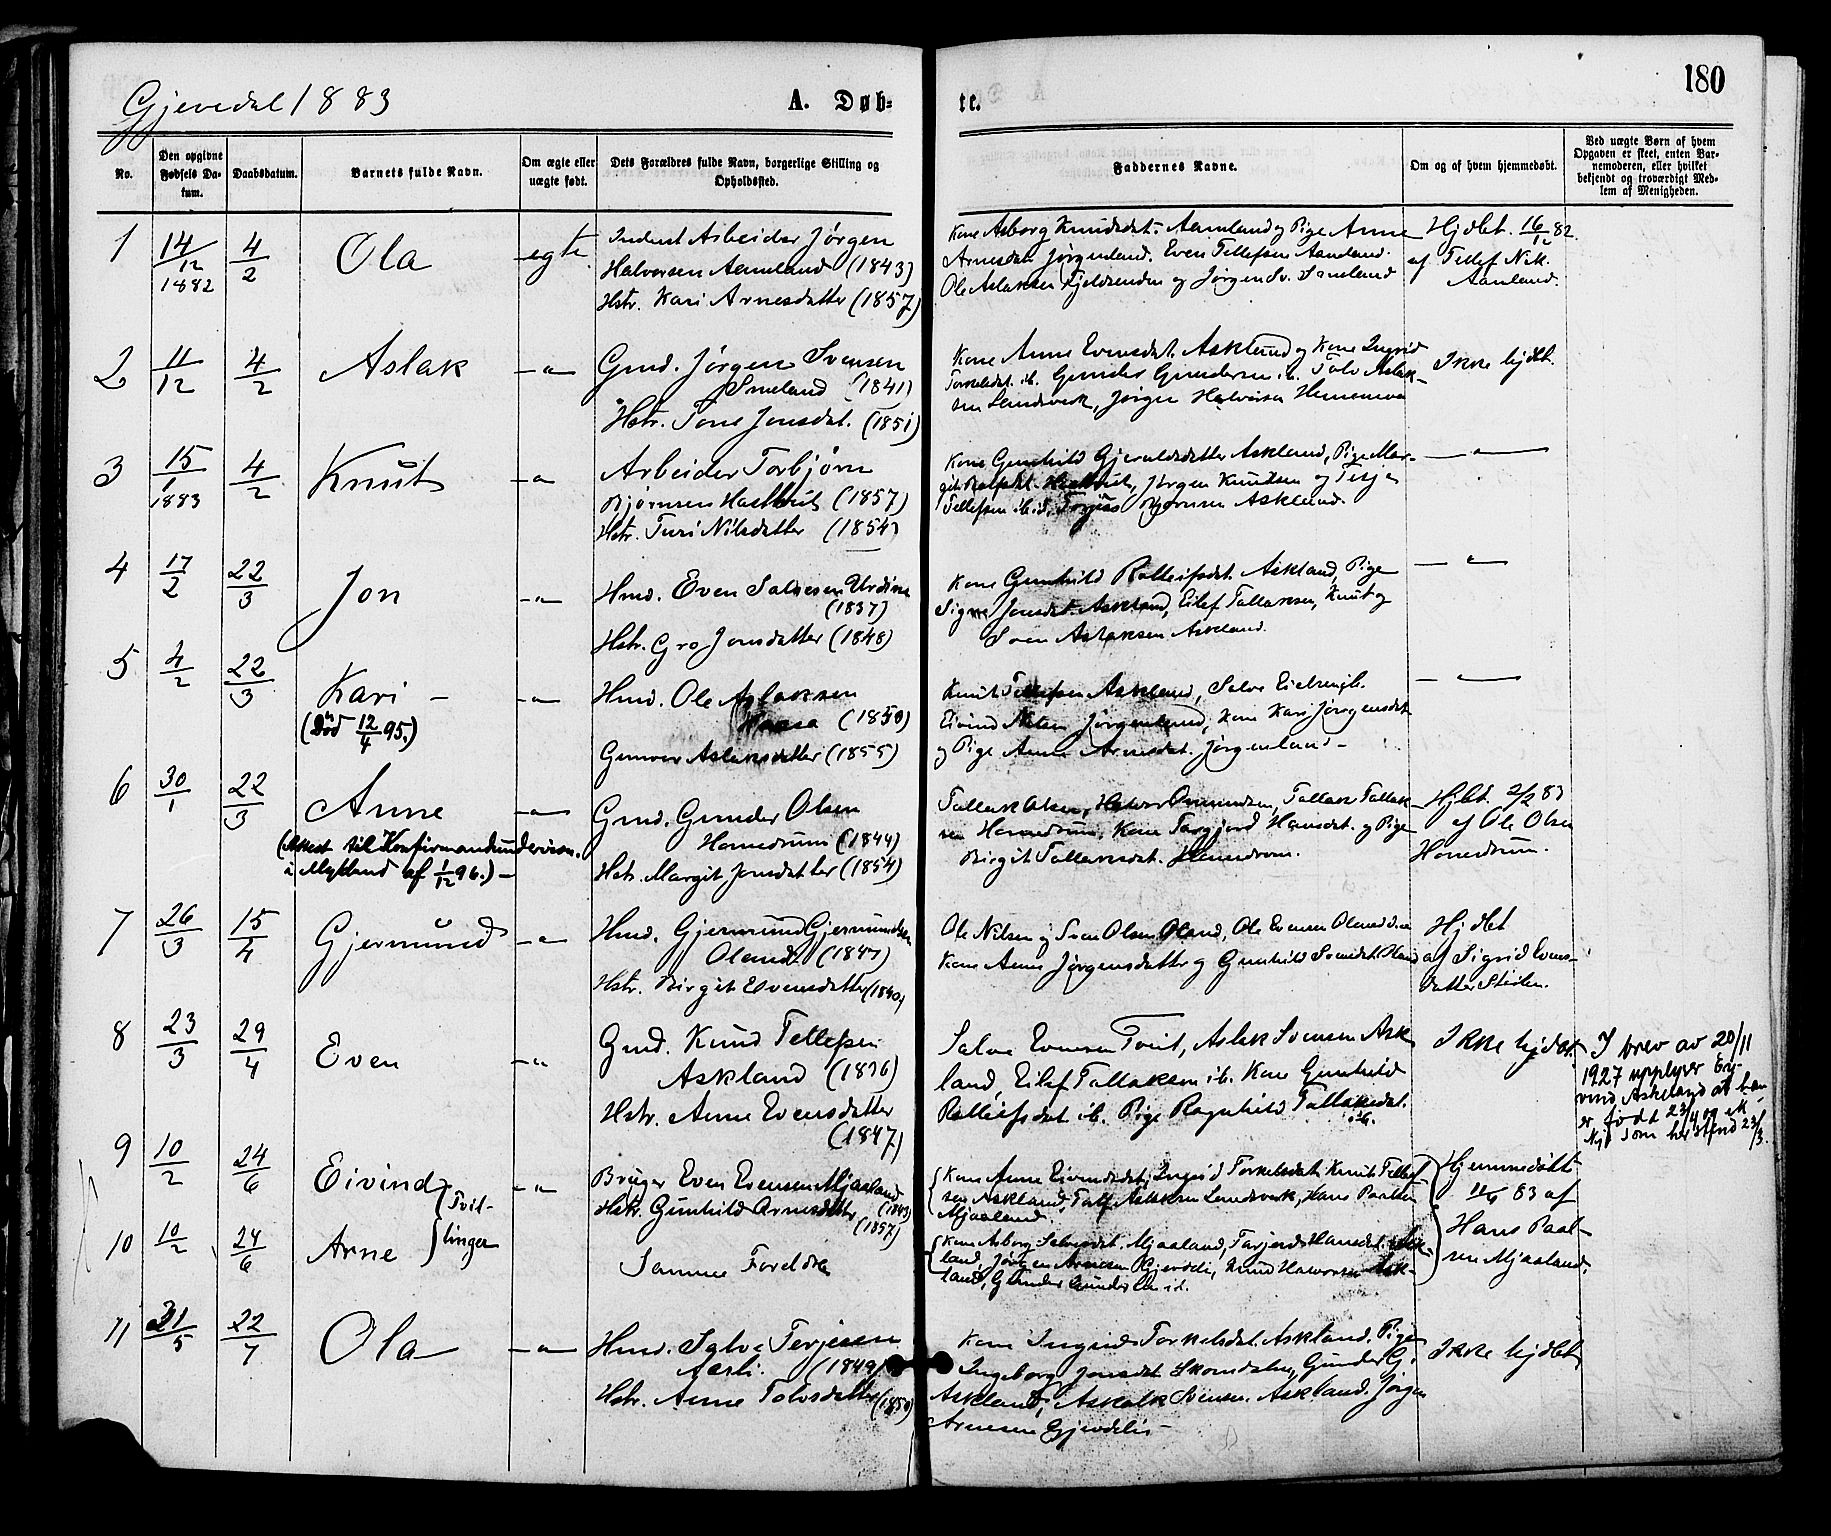 Gjevedal 1883
A. Døb-
te.
180
No.
Den opgivne Fødsels Da-tum.
Daabsdatum.
Barnets fulde Navn.
Om ægte eller uægte født.
Dets Forældres fulde Navn, borgerlige Stilling og Opholdssted.
Faddernes Navne.
Om og af hvem hjemmedøbt.
Ved uægte Børn af hvem Opgaven er skeet, enten Bar-nemoderen, eller hvilket bekjendt og troværdigt Med-lem af Menigheden.
1 14/12 1882 4/2 Ola egte
Arbeider Jørgen
Halvorsen Aamland (1843)
Hstr. Kari Arnesdatter (1857)
Kone Asborg Knudsdat. Aamland og Pige Anne
Arnesdat. Jørgenland. Even Tellefsen Aamland.
Ole Aslaksen og Jørgen Sv. Smeland
Hjdbt. 16/12 82
af Tellef Nik.
Aamland.
2 11/12 4/2 Aslak -"-
Gmd. Jørgen Svensen
Smeland (1841)
Hstr. Tone Jonsdat. (1851)
Kone Anne Evensdat. Askland og Kone Ingrid
Torkelsdat. ib. Gunder Gundersen ib. Tolv Aslak-
sen Landsverk, Jørgen Halvorsen
Ikke hjdbt.
3 15/1 1883 4/2 Knut -"-
Arbeider Torbjørn
Bjørnsen (1857)
Hstr. Turi Nilsdatter (1854)
Kone Gunhild Gjeruldsdatter Askland, Pige Mar-
git Jørgen Knudsen og Terje
Tellefsen ibid. Bjørnsen Askland.
-"-
4 17/2 22/3 Jon -"-
Hmd. Even Salvesen
(1837)
Hstr. Gro Jonsdatter (1848)
Kone Gunhild Rolleifsdat. Askland, Pige
Signe Jonsdat. Askland, Eilef Tallaksen, Knut og
Sven Aslaksen Askland.
-"-
5 4/2 22/3 Kari -
(Død 12/4 95.)
-"-
Hmd. Ole Aslaksen
(1850)
Gunvor Aslaksdatter (1855)
Knut Tellefsen Askland, Salve
Eivind Nilsen Jørgenland, Kone Kari Jørgensdat.
og Pige Anne Arnesdat. Jørgenland -
-"-
6 30/1 22/3 Anne
(Attest til Konfirmandundervisn.
i Mykland af 1/12 96.) -
-"-
Gmd. Gunder Olsen
Homedrum (1844)
Hstr. Margit Jonsdatter (1854)
Tallak Olsen, Halvor Tallak Tallak-
sen Homedrum, Kone Torgjerd Hansdat. og Pige
Birgit Tallaksdat. Homdrom.
Hjbt. 2/2 83
af Ole Olsen
Homedrum.
7 26/3 15/4 Gjermund -"-
Hmd. Gjermund Gjermundsen
Oland (1847)
Hstr. Birgit Evensdatter (1840)
Ole Nilsen og Sven Olsen Oland, Ole Evensen
Kone Anne Jørgensdatter og Gunhild Svensdat. Oland
Hjdbt
af Sigrid Evens-
datter
8 23/3 29/4 Even -"-
Gmd. Knud Tellefsen
Askland (1836)
Hstr. Anne Evensdatter
(1847)
Salve Evensen Tveit, Aslak Svensen Ask
land, Eilef Tallaksen ib. Kone Gunhild
Rolleifsdat. ib. Pige Ragnhild Tallaksdat.
ib.
Ikke hjdbt.
I brev av 20/11
1927 upplyser Ey-
vind Askeland at han
er født 23/4 og ik
kje som her stend 23/3.
9 10/2 24/6 Eivind -"-
Bruger Even Evensen Mjaaland
(1843)
Hstr. Gunhild Arnesdatter
(1857)
Kone Anne Eivindsdat., Ingrid Torkelsdat. Knut Tellef-
sen Askland, Tolf Aslaksen Landsverk, Hans Paalsen
Mjaaland.
Tvil-
linger
Hjemmedøbt
83 af
Hans Paal-
sen Mjaaland.
10 10/2 24/6 Arne
Samme Foreldre
Kone Asborg Salvesdat. Mjaaland, Torjerd Hansdat. Ask-
land, Jørgen Arnesen Gjevdeli, Knud Halvorsen Ask-
land, Gunder Gundersen id.
11 21/5 22/7 Ola -"-
Hmd. Salve Terjesen
Aasli. (1849)
Hstr. Anne Tolvsdatter (1850)
Kone Ingrid Torkelsdat. Askland. Pige
Ingeborg Jonsdat. Skomdalen, Gunder G.
Askland, Aslak Svensen Askland. Jørgen
Arnesen Gjevdeli -
Ikke hjdbt